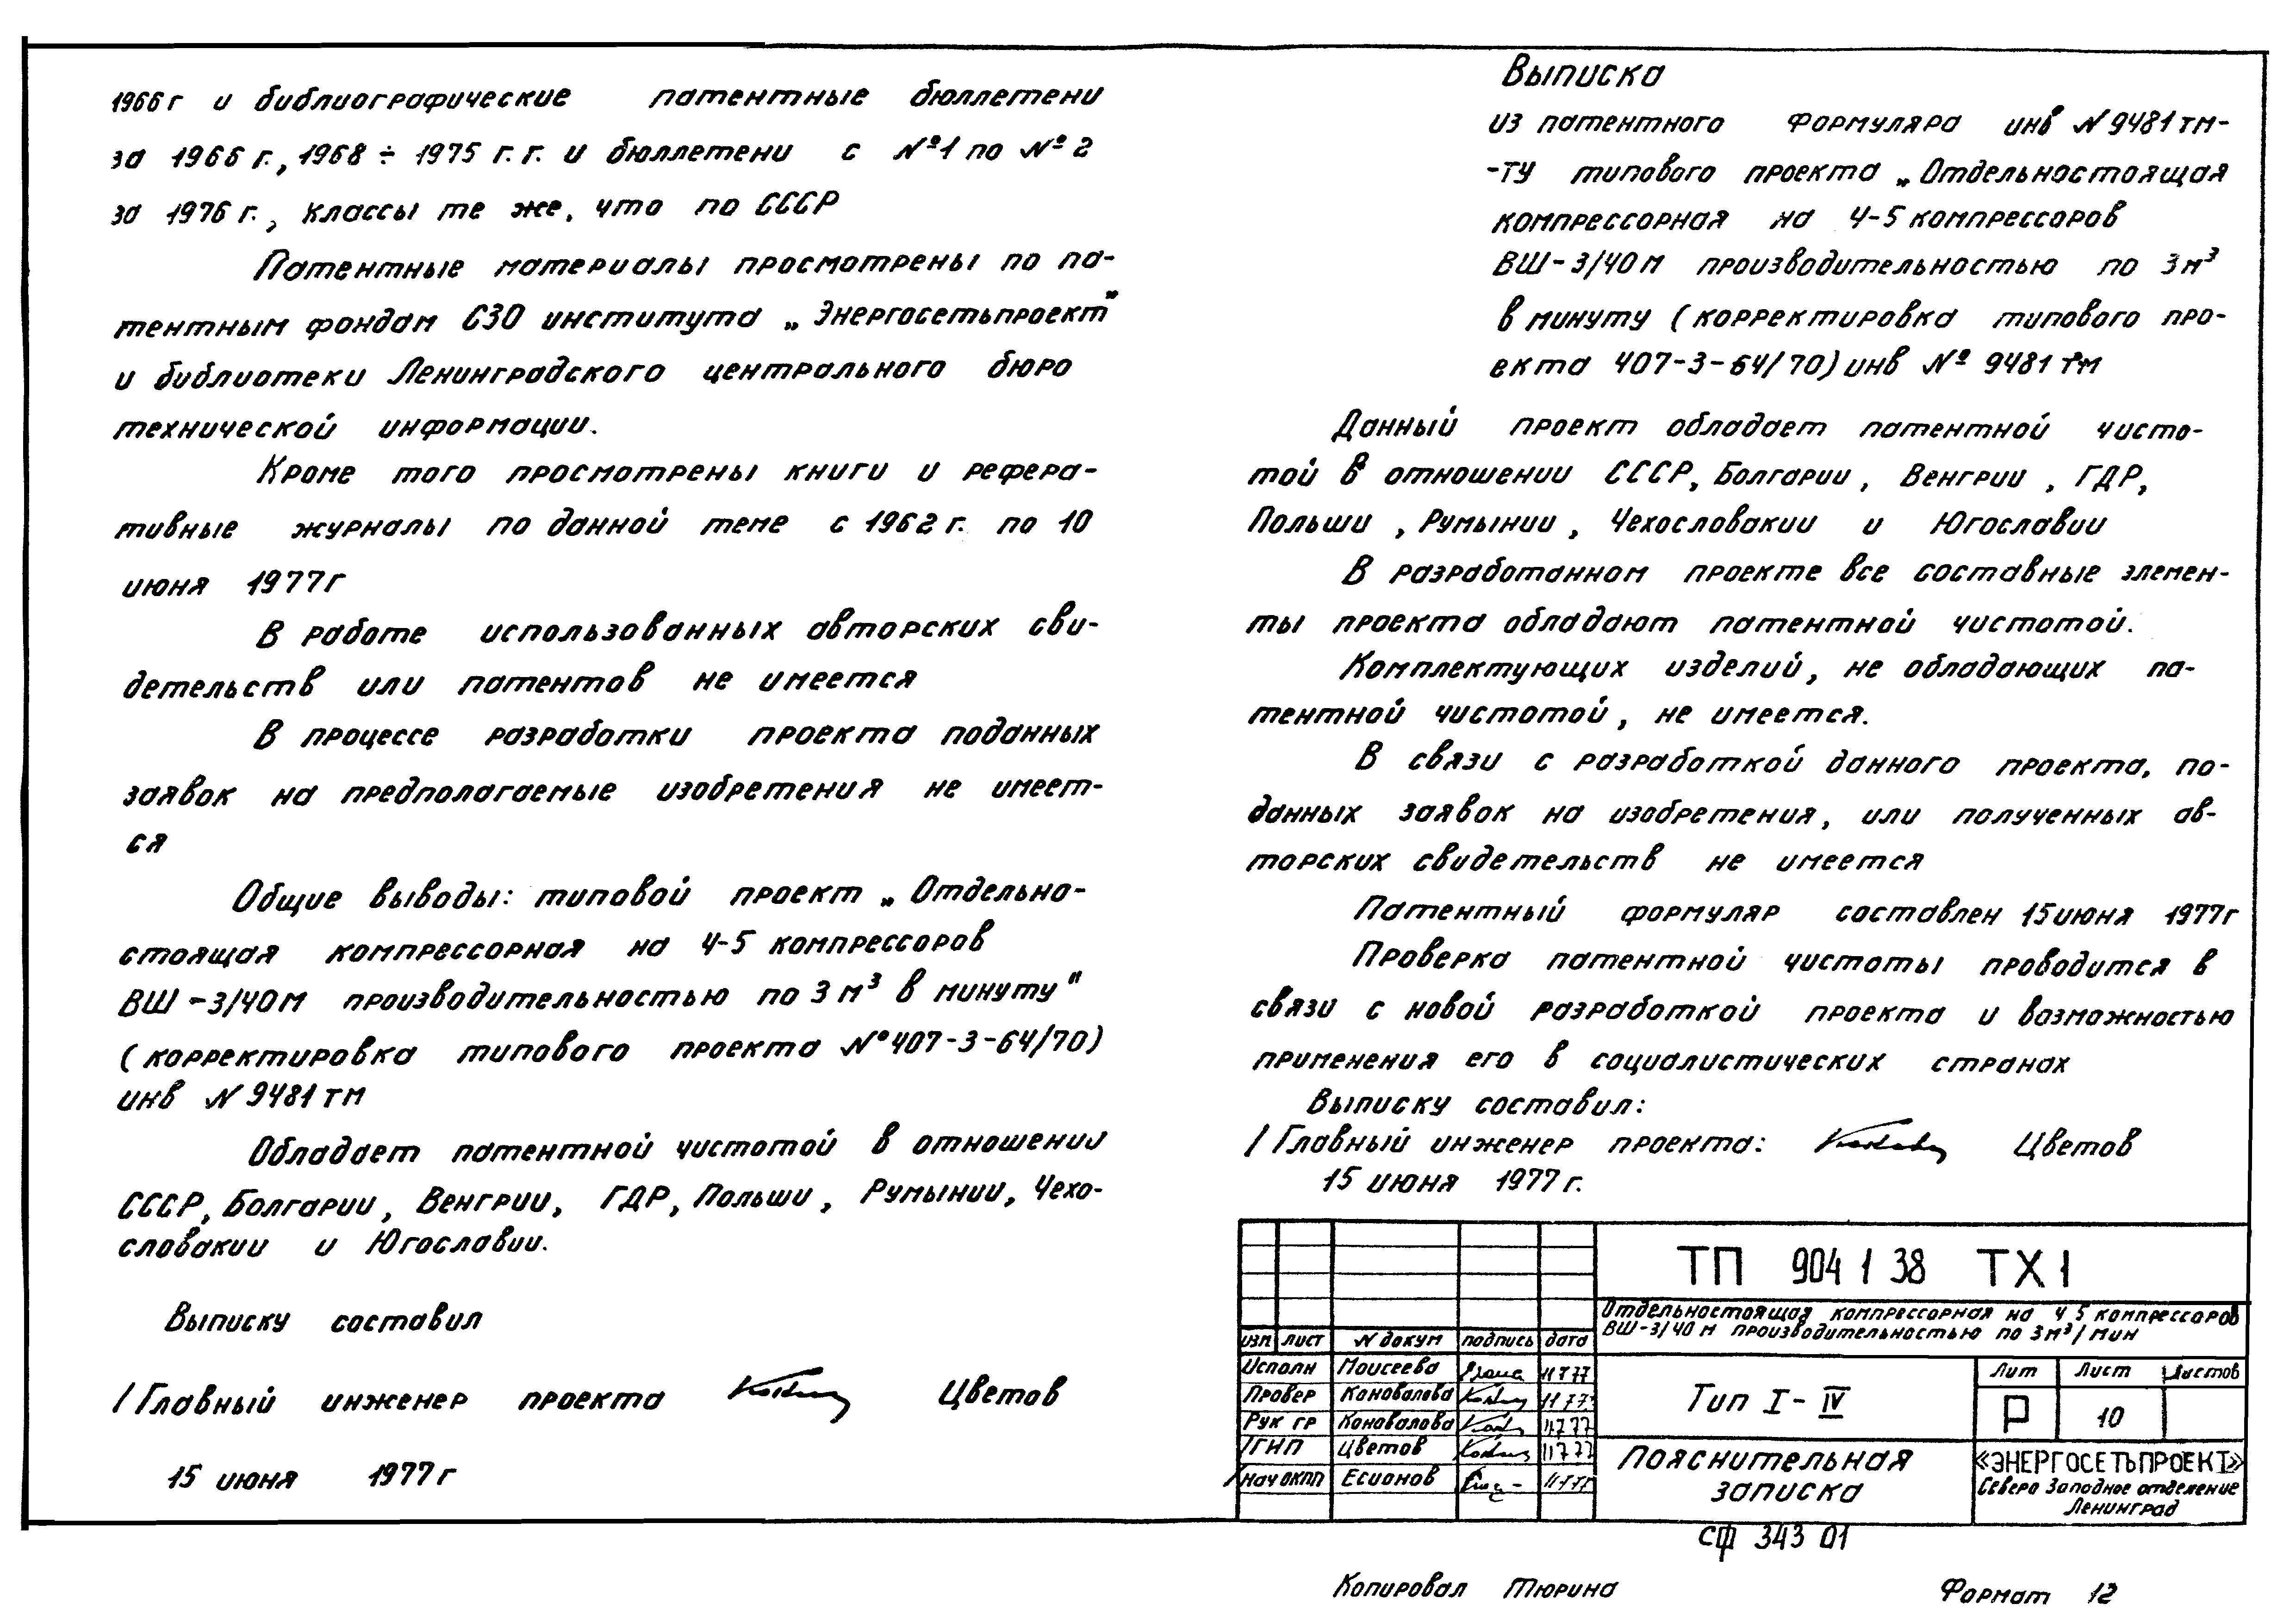 1966 г и библиографические патентные бюллетени
за 1966 г., 1968 ÷ 1975 г.г. и бюллетени с №1 по № 2
за 1976 г., классы те же, что по СССР
Патентные материалы просмотрены по па-
тентным фондам СЗО института „Энергосетьпроект"
и библиотеки Ленинградского центрального бюро
технической информации.
Кроме того просмотрены книги и рефера-
тивные журналы по данной теме с 1962 г. по 10
июня 1977г
В работе использованных авторских сви-
детельств или патентов не имеется
В процессе разработки проекта поданных
заявок на предполагаемые изобретения не имеет-
ся
Общие выводы: типовой проект „Отдельно-
стоящая компрессорная на 4-5 компрессоров
ВШ-3/40м производительностью по 3 м³ в минуту"
(корректировка типового проекта №407-3-64/70)
инв N 9481 тм
Обладает патентной чистотой в отношении
СССР, Болгарии, Венгрии, ГДР, Польши, Румынии, Чехо-
словакии и Югославии.
Выписку составил
/ Главный инженер проекта Цветов
15 июня 1977 г
Выписка
из патентного формуляра инв N 9481 тм-
-ТУ типового проекта „Отдельностоящая
компрессорная на 4-5 компрессоров
ВШ-3/40м производительностью по 3м³
в минуту (корректировка типового про-
екта 407-3-64/70) инв № 9481 тм
Данный проект обладает патентной чисто-
той в отношении СССР, Болгарии, Венгрии, ГДР,
Польши, Румынии, Чехословакии и Югославии
В разработанном проекте все составные элемен-
ты проекта обладают патентной чистотой.
Комплектующих изделий, не обладающих па-
тентной чистотой, не имеется.
В связи с разработкой данного проекта, по-
данных заявок на изобретения, или полученных ав-
торских свидетельств не имеется
Патентный формуляр составлен 15 июня 1977г
Проверка патентной чистоты проводится в
связи с новой разработкой проекта и возможностью
применения его в социалистических странах
Выписку составил:
/ Главный инженер проекта: Цветов
15 июня 1977 г.
ТП 904 1 38 ТХ1
Отдельностоящая компрессорная на 4 5 компрессоров
ВШ-3/40 м производительностью по 3м³/мин
изм лист N докум подпись дата
Исполн Моисеева 11 7 77
Провер Коновалова 11 7 77
Рук гр Коновалова 11 7 77
ГИП Цветов 11 7 77
Нач ОКПП Есионов 11 7 77
Тип I - IV
Лит Лист Листов
Р 10
Пояснительная
записка
«ЭНЕРГОСЕТЬПРОЕКТ»
Северо Западное отделение
Ленинград
СФ 343 01
Копировал Тюрина Формат 12